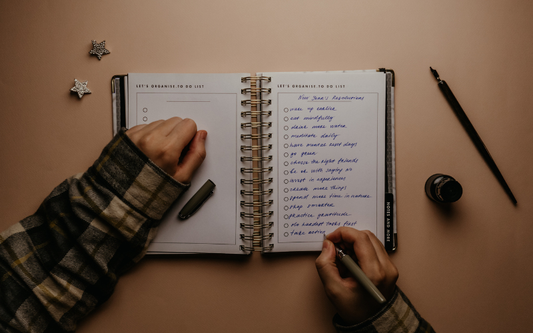 LET'S ORGANISE TO DO LIST
LET'S ORGANISE TO DO LIST
New Year's Resolutions
wake up earlier
eat mindfully
drink more water
meditate daily
have mental rest days
go green
choose the right friends
be ok with saying no
invest in experiences
create more things
spend more time in nature
shop smarter
practice gratitude
do hardest tasks first
take action